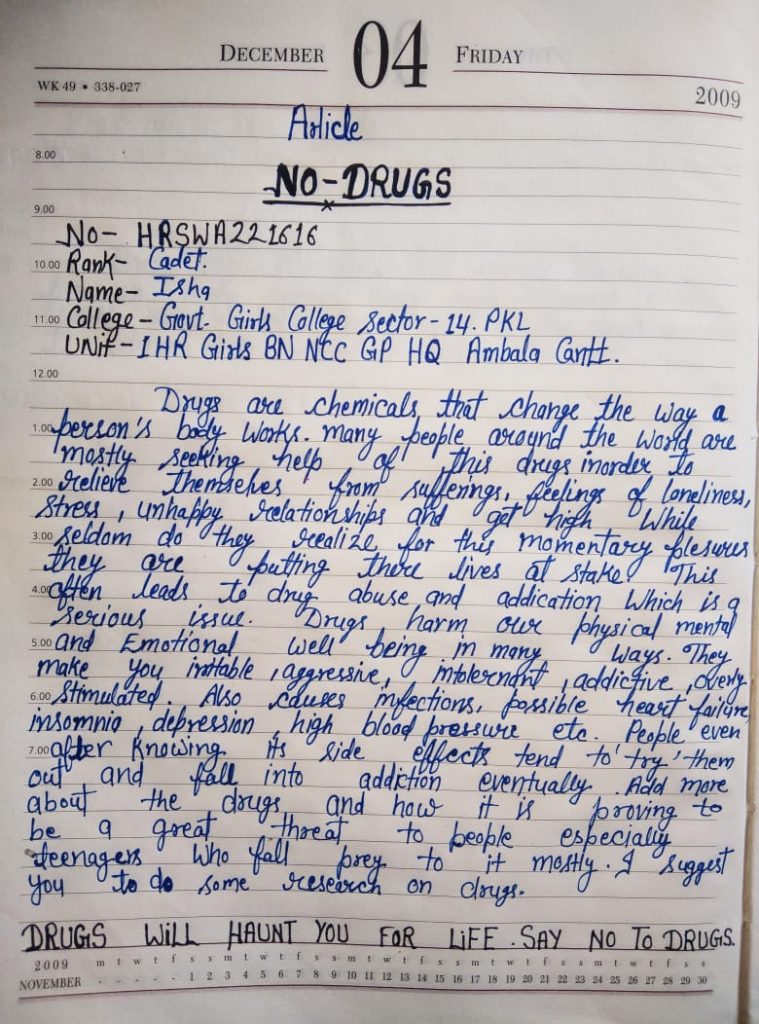 DECEMBER 04 FRIDAY
WK 49 ▪ 338-027
2009
Article
8.00
NO-DRUGS
9.00
No- HRSWA221616
10.00 Rank- Cadet.
Name- Isha
11.00 College- Govt. Girls College Sector-14. PKL
Unit- 1HR Girls BN NCC GP HQ Ambala Cantt.
12.00
Drugs are chemicals that change the way a
1.00 person's body works. many people around the world are
mostly seeking help of this drugs inorder to
2.00 relieve themselves from sufferings, feelings of loneliness,
stress, unhappy relationships and get high While
3.00 seldom do they realize for this momentary plesures
they are putting there lives at stake. This
4.00 often leads to drug abuse and addication which is a
serious issue. Drugs harm our physical mental
5.00 and Emotional well being in many ways. They
make you irritable, aggressive, intolernant, addictive, overly
6.00 Stimulated. Also causes infections, possible heart failure,
insomnia, depression, high blood pressure etc. People even
7.00 after knowing its side effects tend to 'try' them
out and fall into addiction eventually. Add more
about the drugs and how it is proving to
be a great threat to people especially
teenagers who fall prey to it mostly. I suggest
you to do some research on drugs.
DRUGS WILL HAUNT YOU FOR LIFE. SAY NO TO DRUGS.
2009 m t w t f s s m t w t f s s m t w t f s s m t w t f s s m t w t f s s
NOVEMBER - - - - - - 1 2 3 4 5 6 7 8 9 10 11 12 13 14 15 16 17 18 19 20 21 22 23 24 25 26 27 28 29 30